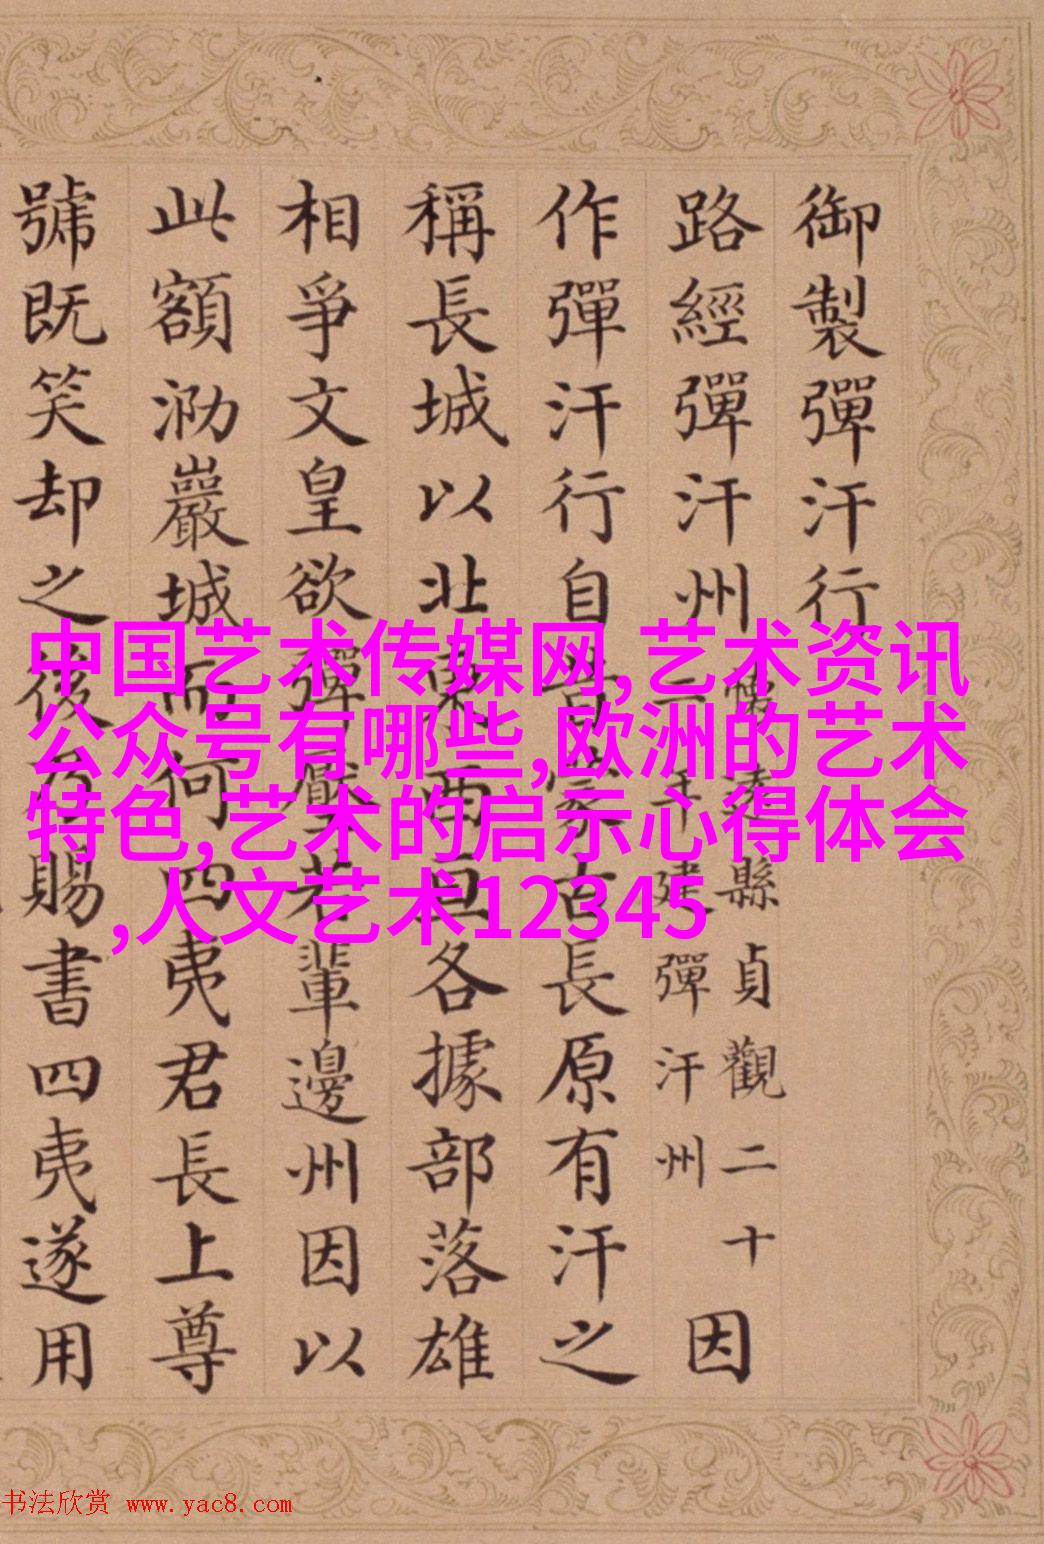 御製彈汗行
路經彈汗州
懷遠縣貞觀二十
二年建彈汗州
因
作彈汗行自昔蒙古長原有汗之
稱長城以北東西亘各據部落雄
相爭文皇欲彈壓若輩邊州因以
此額泐巖城而何四夷君長上尊
號既笑却之後賜書四夷遂用
中国艺术传媒网,艺术资讯
公众号有哪些,欧洲的艺术
特色,艺术的启示心得体会
,人文艺术12345
书法欣赏 www.yac8.com